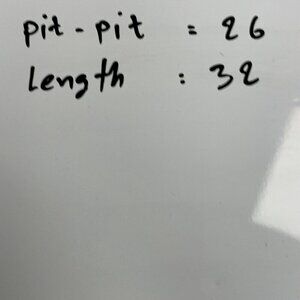 pit - pit = 26
Length : 32